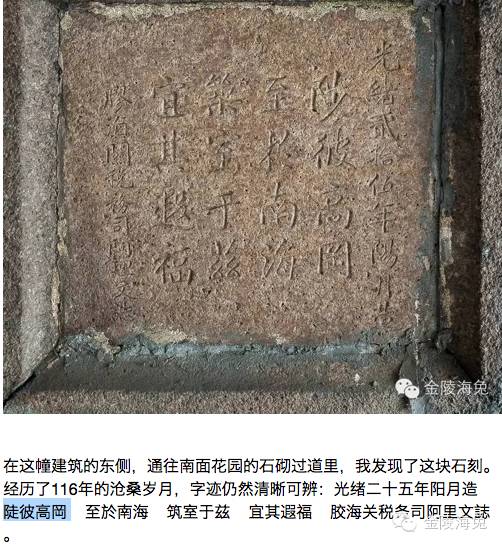 光緒貳拾伍年陽月造
陟彼高岡
至於南海
築室于茲
宜其遐福
膠海關稅務司阿理文誌
金陵海兔
在这幢建筑的东侧，通往南面花园的石砌过道里，我发现了这块石刻。
经历了116年的沧桑岁月，字迹仍然清晰可辨：光绪二十五年阳月造
陡彼高岡 至於南海 筑室于兹 宜其遐福 胶海关税务司阿里文誌
。
金陵海兔